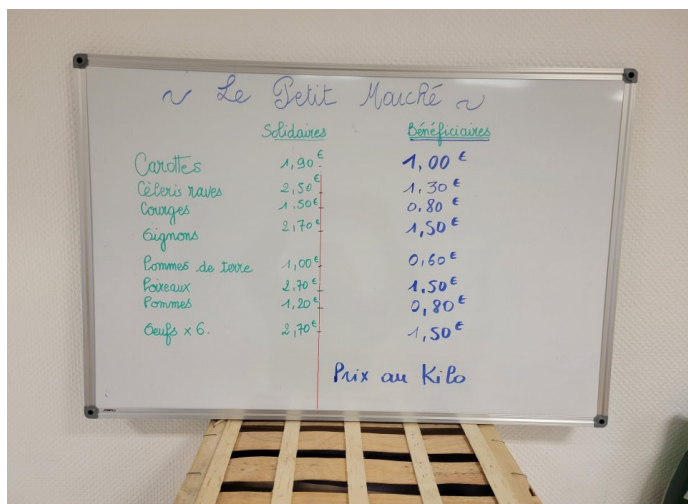 ~ Le Petit Marché ~
Solidaires Bénéficiaires
Carottes 1,90€ 1,00€
Céleris raves 2,50€ 1,30€
Courges 1.50€ 0,80€
Oignons 2,70€ 1,50€
Pommes de terre 1,00€ 0,60€
Poireaux 2,70€ 1,50€
Pommes 1,20€ 0,80€
Oeufs x 6. 2,70€ 1,50€
Prix au Kilo